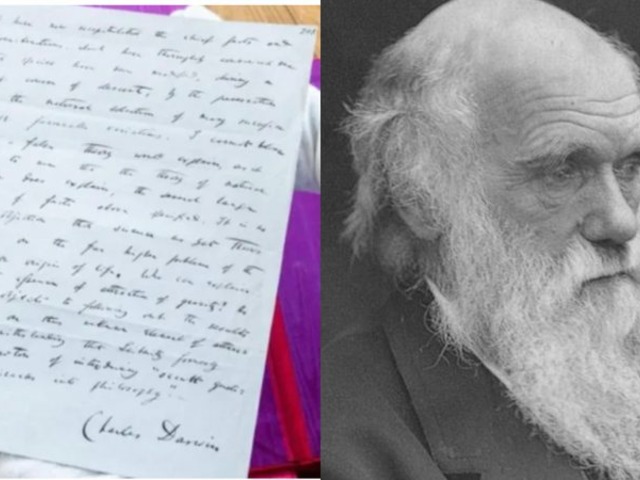 have now recapitulated the chief facts and
considerations, which have thoroughly convinced me
species have been modified, during a
course of descent, by the preservation
the natural selection of many successive
favourable variations. I cannot believe
a false theory would explain, as it
to me that the theory of natural
does explain, the several large
of facts above specified. It is no
objection that science as yet throws
on the far higher problem of the
origin of life. Who can explain
essence of attraction of gravity? No
objects to following out the results
on this unknown element of attraction
notwithstanding that Leibnitz formerly
Newton of introducing "occult qualities
miracles into philosophy".
Charles Darwin